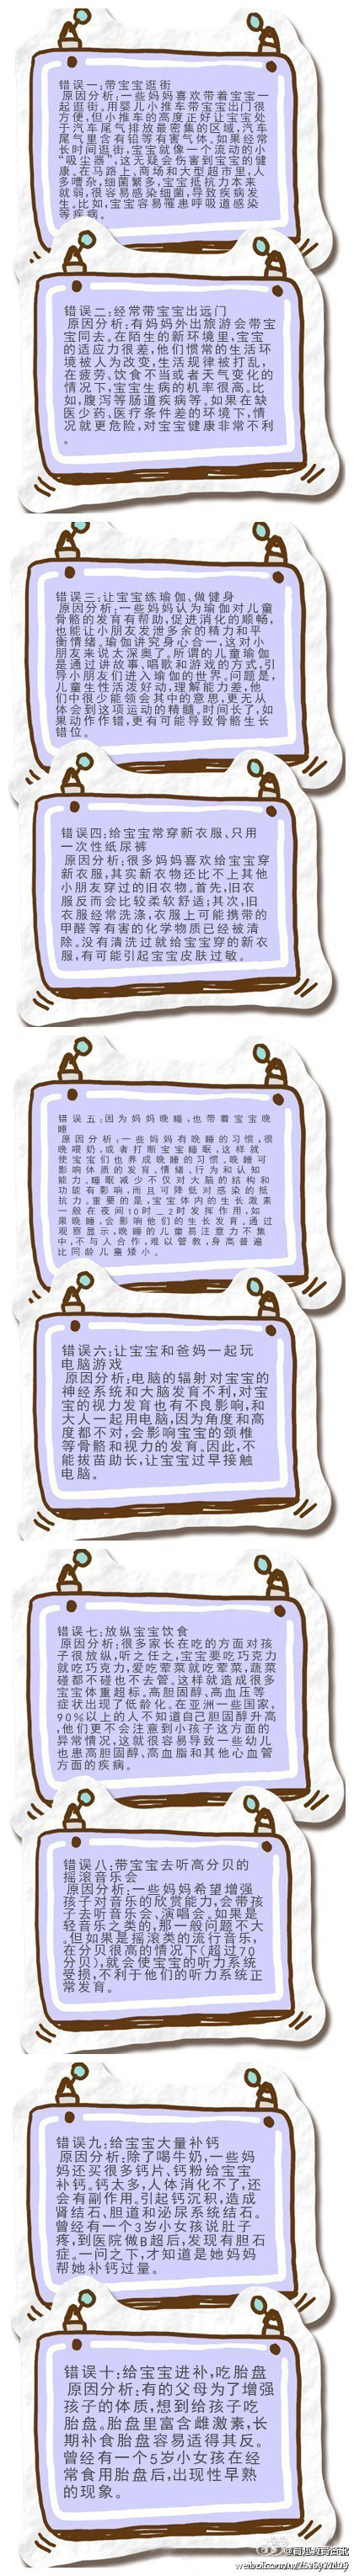 错误一:带宝宝逛街
原因分析:一些妈妈喜欢带着宝宝一
起逛街。用婴儿小推车带宝宝出门很
方便,但小推车的高度正好让宝宝处
于汽车尾气排放最密集的区域,汽车
尾气里含有铅等有害气体。如果经常
长时间逛街,宝宝就像一个流动的小
“吸尘器”,这无疑会伤害到宝宝的健
康。在马路上、商场和大型超市里,人
多嘈杂,细菌繁多,宝宝抵抗力本来
就弱,很容易感染细菌,导致疾病发
生。比如,宝宝容易罹患呼吸道感染
等疾病。
错误二:经常带宝宝出远门
原因分析:有妈妈外出旅游会带宝
宝同去。在陌生的新环境里,宝宝
的适应力很差,他们惯常的生活环
境被人为改变,生活规律被打乱,
在疲劳、饮食不当或者天气变化的
情况下,宝宝生病的机率很高。比
如,腹泻等肠道疾病等。如果在缺
医少药、医疗条件差的环境下,情
况就更危险,对宝宝健康非常不利
。
错误三:让宝宝练瑜伽、做健身
原因分析:一些妈妈认为瑜伽对儿童
骨骼的发育有帮助,促进消化的顺畅,
也能让小朋友发泄多余的精力和平
衡情绪。瑜伽讲究身心合一,这对小
朋友来说太深奥了。所谓的儿童瑜伽
是通过讲故事、唱歌和游戏的方式,引
导小朋友们进入瑜伽的世界。问题是,
儿童生性活泼好动,理解能力差,他
们中很少能领会其中的意思,更无从
体会到这项运动的精髓。时间长了,如
果动作作错,更有可能导致骨骼生长
错位。
错误四:给宝宝常穿新衣服、只用
一次性纸尿裤
原因分析:很多妈妈喜欢给宝宝穿
新衣服,其实新衣物还比不上其他
小朋友穿过的旧衣物。首先,旧衣
服反而会比较柔软舒适;其次,旧
衣服经常洗涤,衣服上可能携带的
甲醛等有害的化学物质已经被清
除。没有清洗过就给宝宝穿的新衣
服,有可能引起宝宝皮肤过敏。
错误五:因为妈妈晚睡,也带着宝宝晚
睡
原因分析:一些妈妈有晚睡的习惯,很
晚喂奶,或者打断宝宝睡眠,这样就
使宝宝们也养成晚睡的习惯。晚睡可
影响体质的发育、情绪、行为和认知
能力。睡眠减少不仅对大脑的结构和
功能有影响,而且可降低对感染的抵
抗力。重要的是,宝宝体内的生长激素
一般在夜间10时—2时发挥作用,如
果晚睡,会影响他们的生长发育。通过
观察显示,晚睡的儿童易注意力不集
中,不与人合作,难以管教,身高普遍
比同龄儿童矮小。
错误六:让宝宝和爸妈一起玩
电脑游戏
原因分析:电脑的辐射对宝宝的
神经系统和大脑发育不利,对宝
宝的视力发育也有不良影响,和
大人一起用电脑,因为角度和高
度都不对,会影响宝宝的颈椎
等骨骼和视力的发育。因此,不
能拔苗助长,让宝宝过早接触
电脑。
错误七:放纵宝宝饮食
原因分析:很多家长在吃的方面对孩
子很放纵,听之任之,宝宝要吃巧克力
就吃巧克力,爱吃荤菜就吃荤菜,蔬菜
碰都不碰也不去管。这样就造成很多
宝宝体重超标。高胆固醇、高血压等
症状出现了低龄化。在亚洲一些国家,
90%以上的人不知道自己胆固醇升高
,他们更不会注意到小孩子这方面的
异常情况,这就很容易导致一些幼儿
也患高胆固醇、高血脂和其他心血管
方面的疾病。
错误八:带宝宝去听高分贝的
摇滚音乐会
原因分析:一些妈妈希望增强
孩子对音乐的欣赏能力,会带孩
子去听音乐会、演唱会。如果是
轻音乐之类的,那一般问题不大
。但如果是摇滚类的流行音乐,
在分贝很高的情况下(超过70
分贝),就会使宝宝的听力系统
受损,不利于他们的听力系统正
常发育。
错误九:给宝宝大量补钙
原因分析:除了喝牛奶,一些妈
妈还买很多钙片、钙粉给宝宝
补钙。钙太多,人体消化不了,还
会有副作用。引起钙沉积,造成
肾结石、胆道和泌尿系统结石。
曾经有一个3岁小女孩说肚子
疼,到医院做B超后,发现有胆石
症。一问之下,才知道是她妈妈
帮她补钙过量。
错误十:给宝宝进补,吃胎盘
原因分析:有的父母为了增强
孩子的体质,想到给孩子吃
胎盘。胎盘里富含雌激素,长
期补食胎盘容易适得其反。
曾经有一个5岁小女孩在经
常食用胎盘后,出现性早熟
的现象。